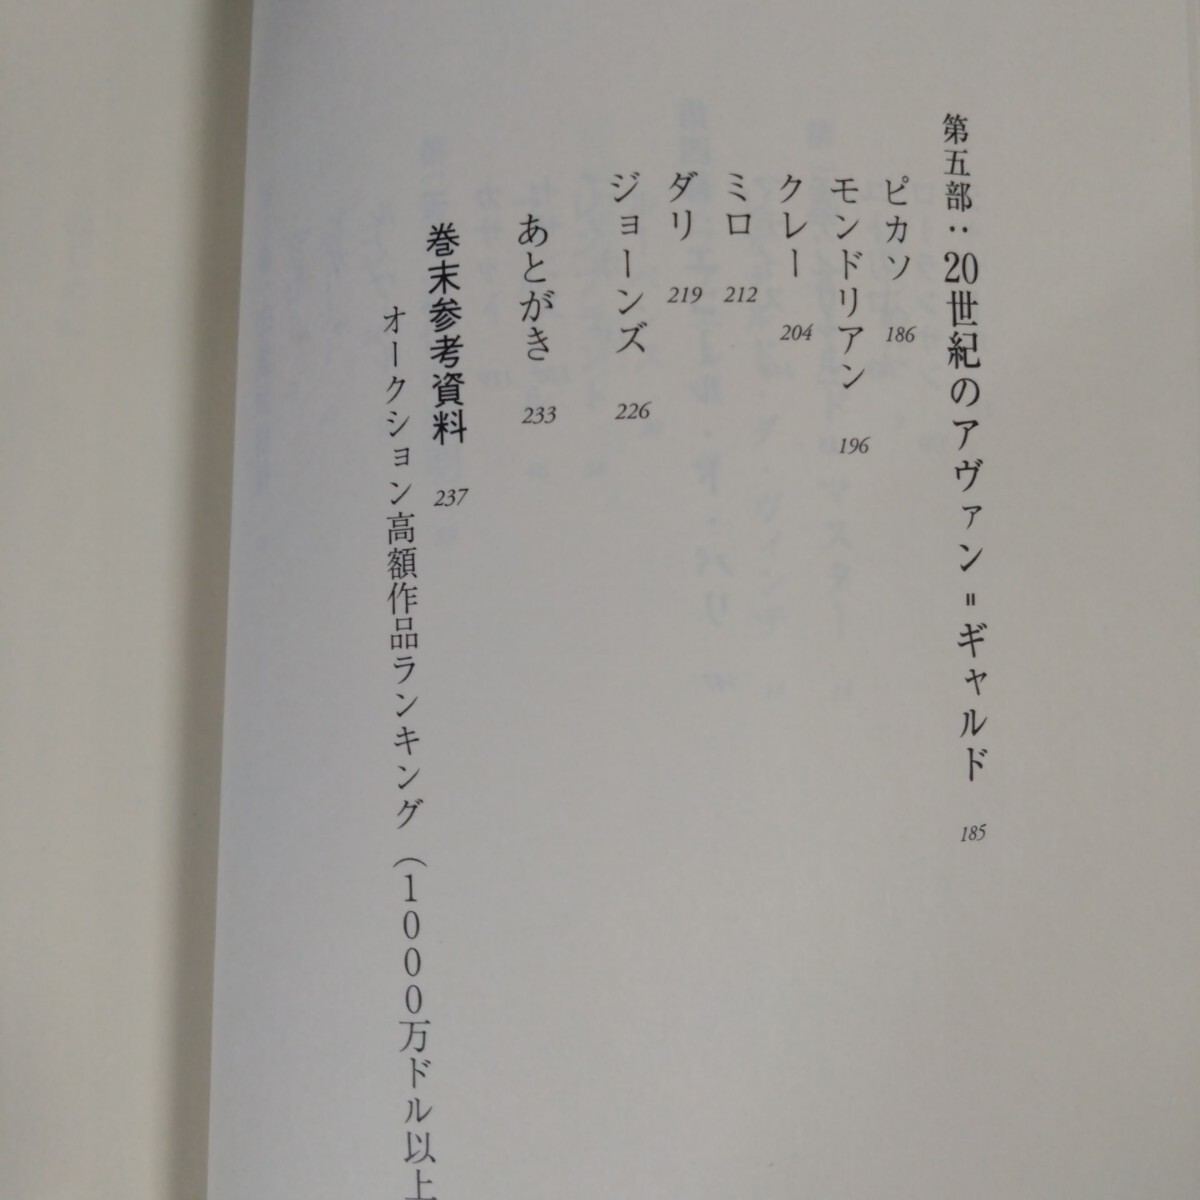 第五部：20世紀のアヴァン＝ギャルド 185
ピカソ 186
モンドリアン 196
クレー 204
ミロ 212
ダリ 219
ジョーンズ 226
あとがき 233
巻末参考資料 237
オークション高額作品ランキング（1000万ドル以上